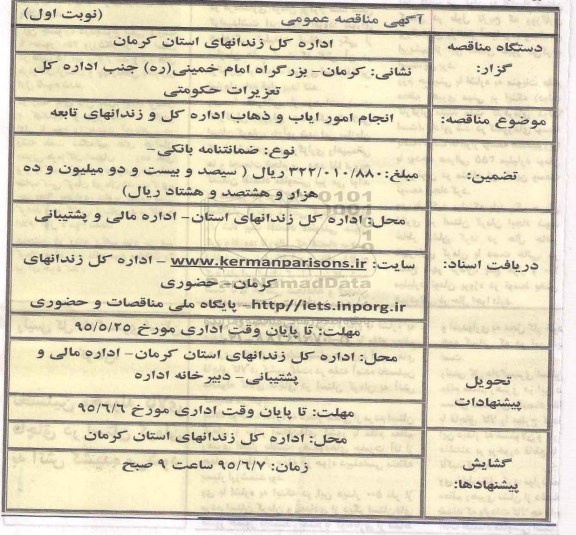 آگهی مناقصه عمومی (نوبت اول)
دستگاه مناقصه گزار:
اداره کل زندانهای استان کرمان
نشانی: کرمان- بزرگراه امام خمینی(ره) جنب اداره کل
تعزیرات حکومتی
موضوع مناقصه:
انجام امور ایاب و ذهاب اداره کل و زندانهای تابعه
تضمین:
نوع: ضمانتنامه بانکی-
مبلغ:۳۲۲/۰۱۰/۸۸۰ ریال ( سیصد و بیست و دو میلیون و ده
هزار و هشتصد و هشتاد ریال)
دریافت اسناد:
محل: اداره کل زندانهای استان- اداره مالی و پشتیبانی
سایت: www.kermanparisons.ir – اداره کل زندانهای
کرمان- حضوری
http//iets.inporg.ir- پایگاه ملی مناقصات و حضوری
مهلت: تا پایان وقت اداری مورخ ۹۵/۵/۲۵
تحویل
پیشنهادات
محل: اداره کل زندانهای استان کرمان- اداره مالی و
پشتیبانی- دبیرخانه اداره
مهلت: تا پایان وقت اداری مورخ ۹۵/۶/۶
گشایش
پیشنهادها:
محل: اداره کل زندانهای استان کرمان
زمان: ۹۵/۶/۷ ساعت ۹ صبح